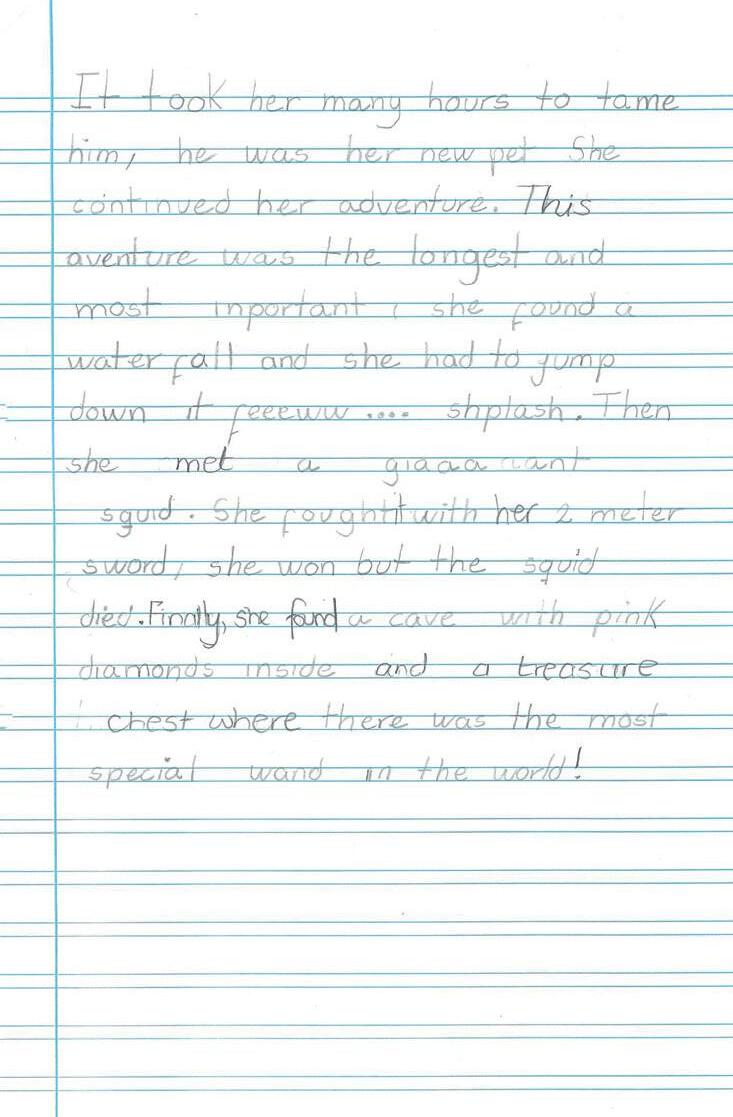 It took her many hours to tame
him, he was her new pet She
continued her adventure. This
aventure was the longest and
most inportant, she found a
water fall and she had to jump
down it feeeww .... shplash. Then
she met a giaaaaant
squid. She fought it with her 2 meter
sword, she won but the squid
died. Finally, she found a cave with pink
diamonds inside and a treasure
chest where there was the most
special wand in the world!